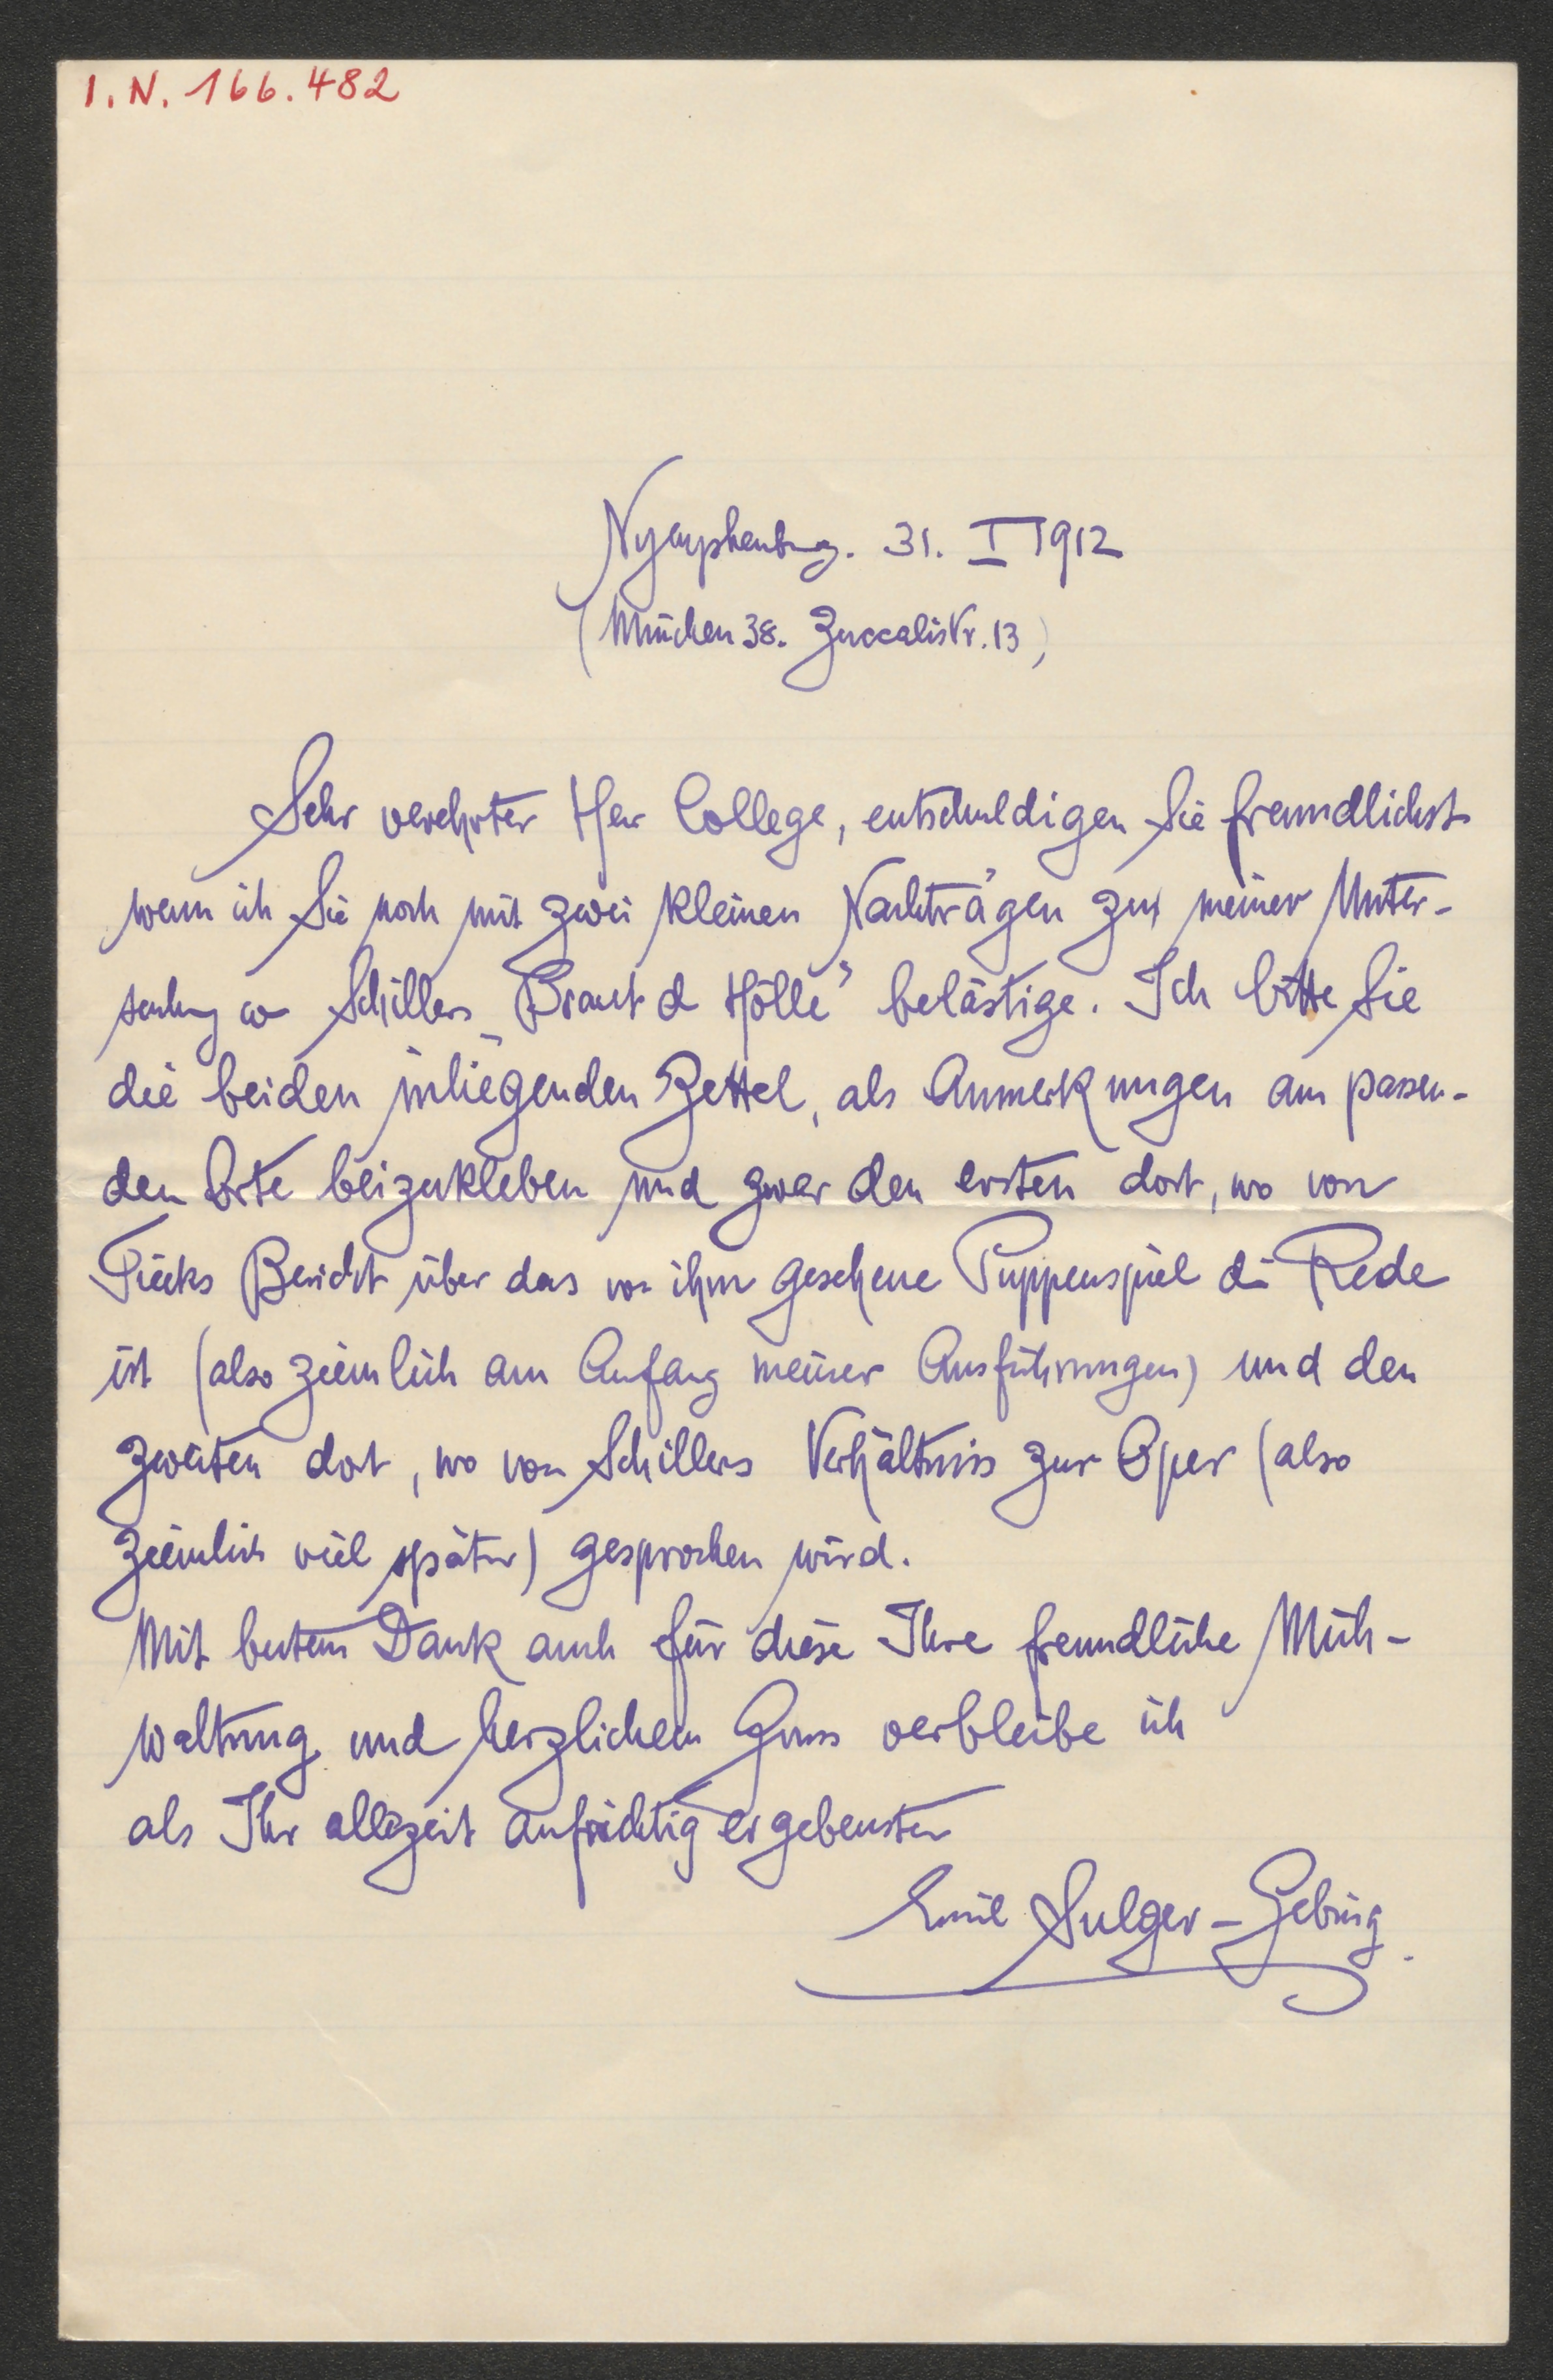 I. N. 166.482
Nymphenburg. 31. I 1912
(München 38. Zuccalistr. 13)
Sehr verehrter Herr College, entschuldigen Sie freundlichst
wenn ich Sie noch mit zwei kleinen Nachträgen zu meiner Unter-
suchung Schillers „Braut d Hölle" belästige. Ich bitte Sie
die beiden inliegenden Zettel, als Anmerkungen am passen-
den Orte beizukleben und zwar den ersten dort, wo von
Tiecks Bericht über das von ihm gesehene Puppenspiel die Rede
ist (also ziemlich am Anfang meiner Ausführungen) und den
zweiten dort, wo von Schillers Verhältniss zur Oper (also
ziemlich viel später) gesprochen wird.
Mit bestem Dank auch für diese Ihre freundliche Müh-
waltung und herzlichem Gruss verbleibe ich
als Ihr allezeit aufrichtig ergebenster
Emil Sulger-Gebing.